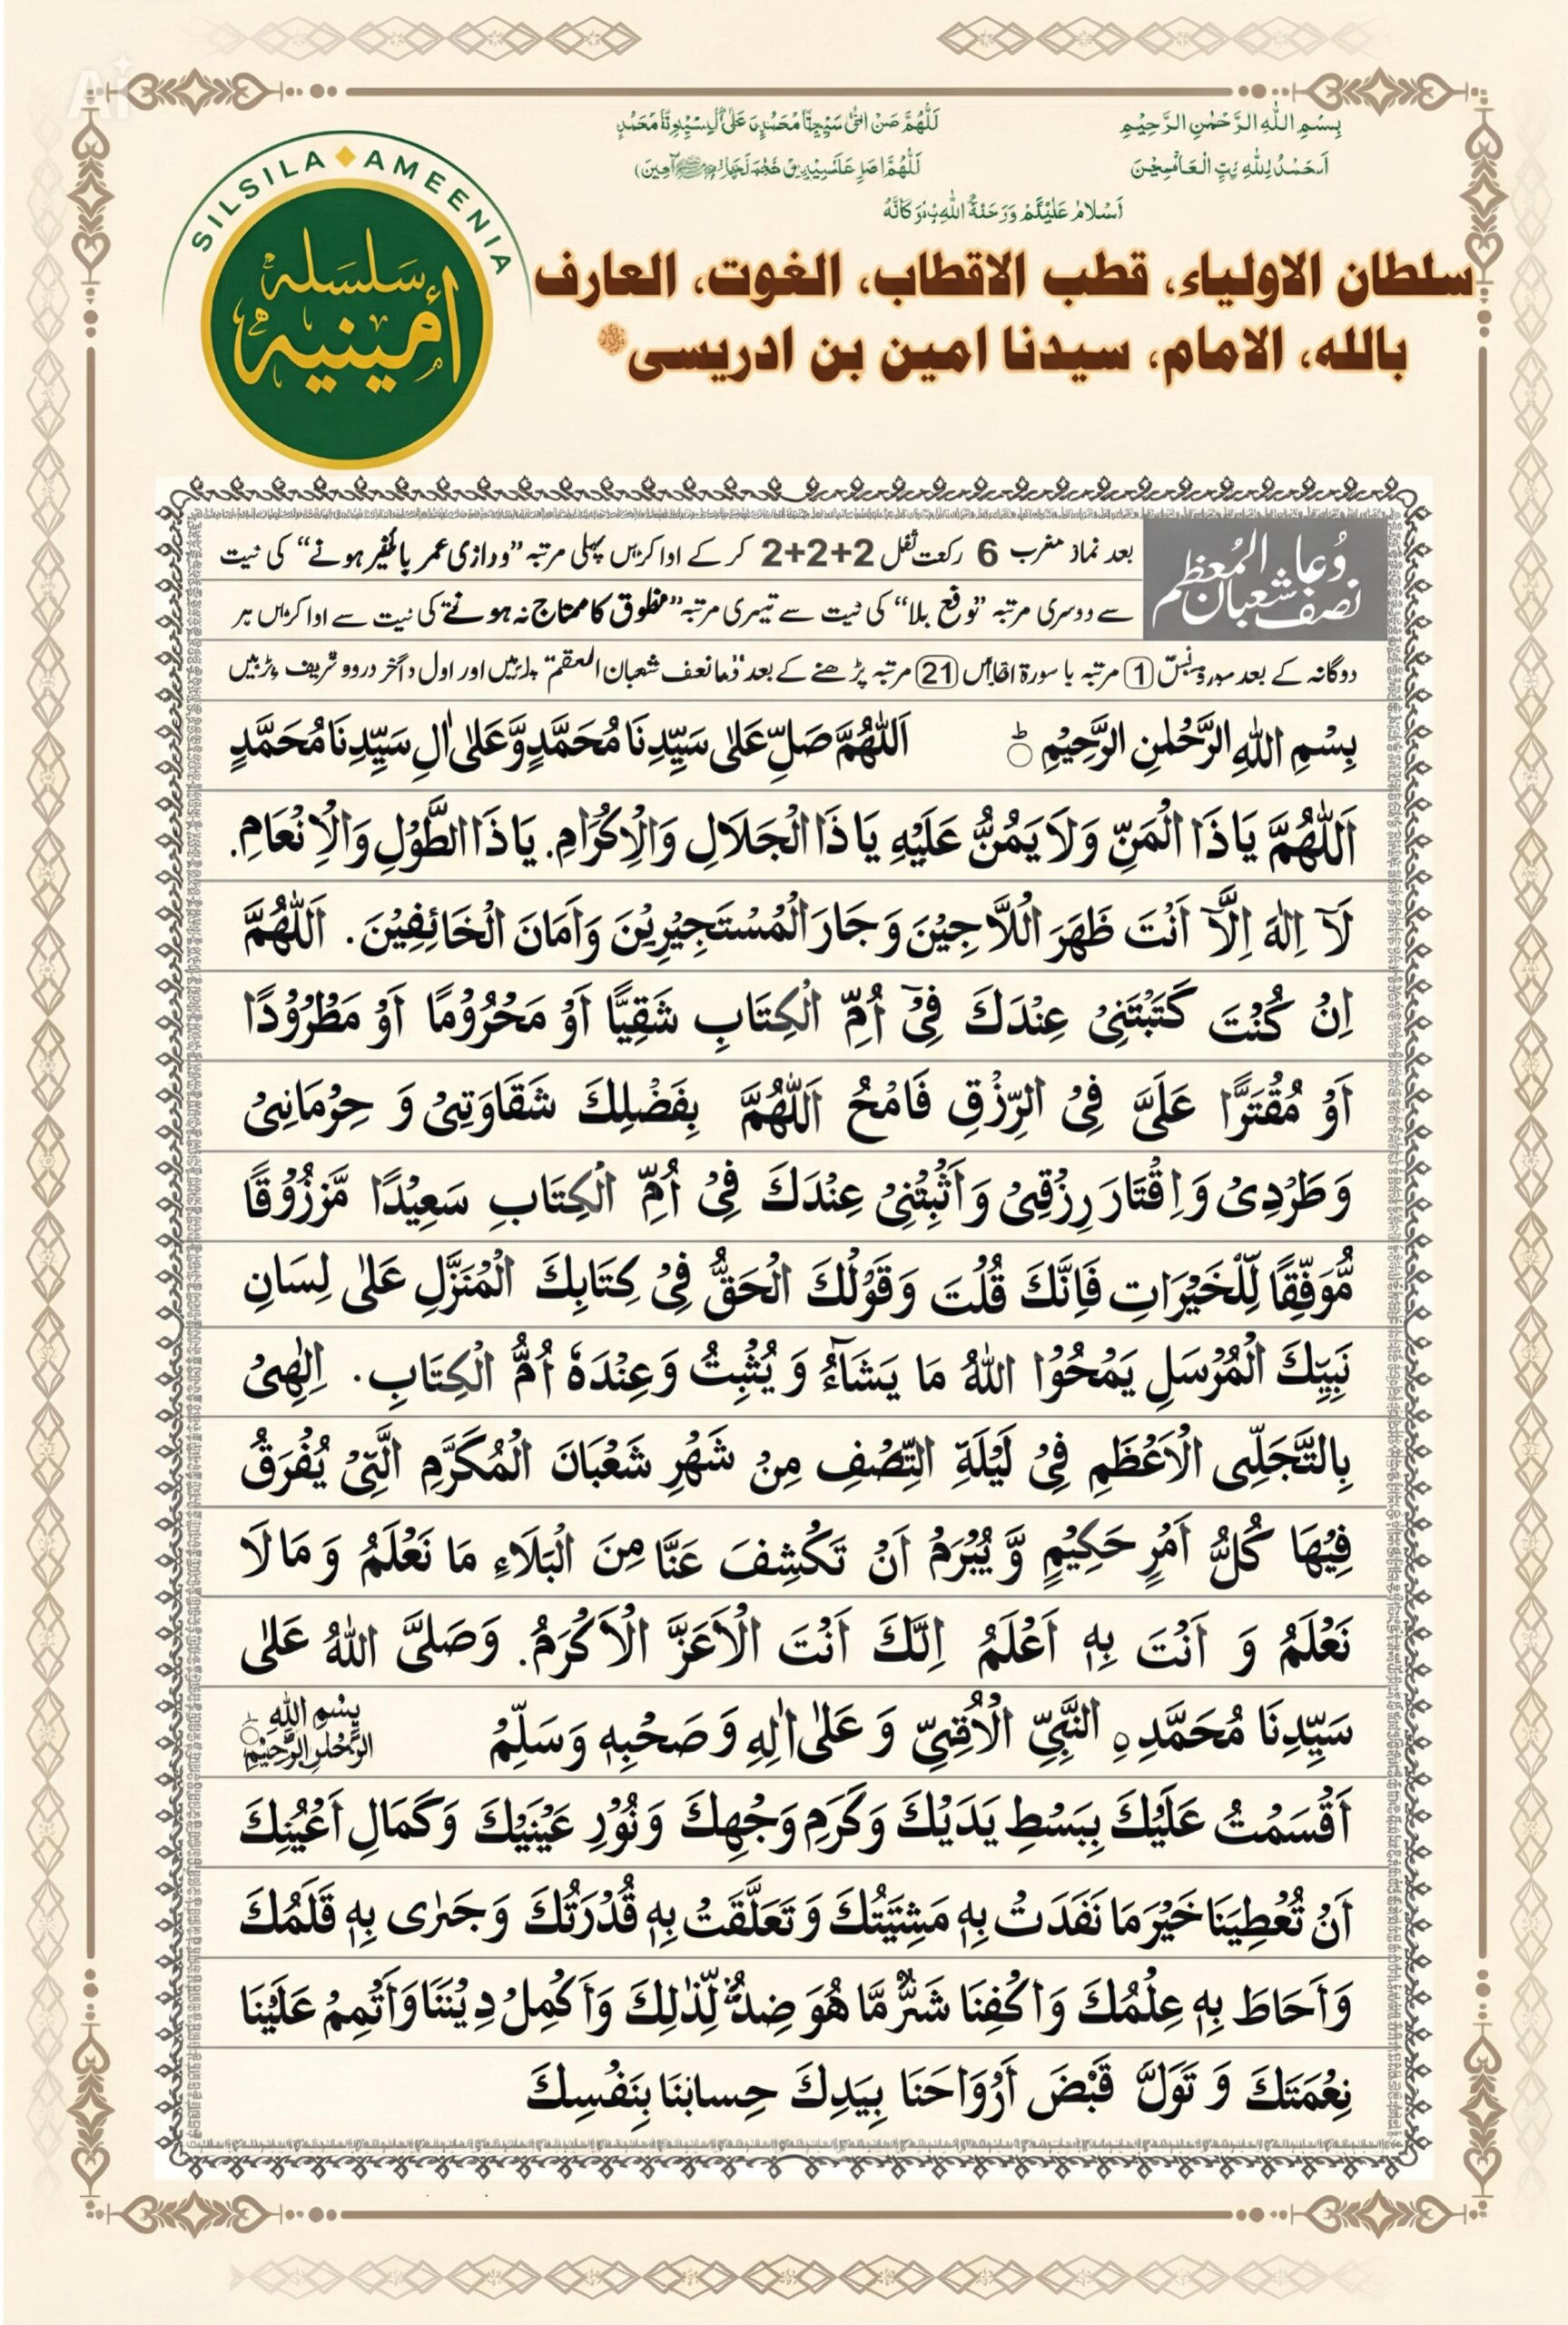 Ai
بِسْمِ اللّٰهِ الرَّحْمٰنِ الرَّحِيْمِ
SILSILA AMEENIA
سلسله
أمينيه
سلطان الاولياء، قطب الاقطاب، الغوث، العارف
بالله، الامام، سيدنا امين بن ادريسى
دُعاء نصف شعبان المُعظم
بعد نماز مغرب 6 رکعت نفل 2+2+2 کر کے ادا کریں پہلی مرتبہ ”درازی عمر بالخیر ہونے“ کی نیت
سے دوسری مرتبہ ”دفع بلا“ کی نیت سے تیسری مرتبہ ”مخلوق کا محتاج نہ ہونے“ کی نیت سے ادا کریں ہر
دوگانہ کے بعد 1 مرتبہ یا سورۃ 21 مرتبہ پڑھنے کے بعد شعبان اور اول و آخر درود شریف پڑہیں
بِسْمِ اللّٰهِ الرَّحْمٰنِ الرَّحِيْمِ اَللّٰهُمَّ صَلِّ عَلٰى سَيِّدِنَا مُحَمَّدٍ وَّعَلٰى اٰلِ سَيِّدِنَا مُحَمَّدٍ
اَللّٰهُمَّ يَا ذَا الْمَنِّ وَلَا يَمُنُّ عَلَيْهِ يَا ذَا الْجَلَالِ وَالْاِكْرَامِ. يَا ذَا الطَّوْلِ وَالْاِنْعَامِ.
لَآ اِلٰهَ اِلَّآ اَنْتَ ظَهَرَ الْلَّاجِيْنَ وَجَارَ الْمُسْتَجِيْرِيْنَ وَاَمَانَ الْخَائِفِيْنَ. اَللّٰهُمَّ
اِنْ كُنْتَ كَتَبْتَنِيْ عِنْدَكَ فِيْ اُمِّ الْكِتَابِ شَقِيًّا اَوْ مَحْرُوْمًا اَوْ مَطْرُوْدًا
اَوْ مُقْتَرًّا عَلَيَّ فِى الرِّزْقِ فَامْحُ اَللّٰهُمَّ بِفَضْلِكَ شَقَاوَتِىْ وَ حِرْمَانِىْ
وَطَرْدِىْ وَاِقْتَارَ رِزْقِىْ وَاَثْبِتْنِىْ عِنْدَكَ فِىْ اُمِّ الْكِتَابِ سَعِيْدًا مَّرْزُوْقًا
مُّوَفَّقًا لِّلْخَيْرَاتِ فَاِنَّكَ قُلْتَ وَقَوْلُكَ الْحَقُّ فِىْ كِتَابِكَ الْمُنَزَّلِ عَلٰى لِسَانِ
نَبِيِّكَ الْمُرْسَلِ يَمْحُوْا اللّٰهُ مَا يَشَآءُ وَ يُثْبِتُ وَعِنْدَهٗ اُمُّ الْكِتَابِ. اِلٰهِىْ
بِالتَّجَلِّى الْاَعْظَمِ فِىْ لَيْلَةِ النِّصْفِ مِنْ شَهْرِ شَعْبَانَ الْمُكَرَّمِ الَّتِىْ يُفْرَقُ
فِيْهَا كُلُّ اَمْرٍ حَكِيْمٍ وَّ يُبْرَمُ اَنْ تَكْشِفَ عَنَّا مِنَ الْبَلَاءِ مَا نَعْلَمُ وَ مَا لَا
نَعْلَمُ وَ اَنْتَ بِهٖ اَعْلَمُ اِنَّكَ اَنْتَ الْاَعَزُّ الْاَكْرَمُ. وَصَلَّى اللّٰهُ عَلٰى
سَيِّدِنَا مُحَمَّدِ ەِ النَّبِيِّ وَ عَلٰى اٰلِهٖ وَ صَحْبِهٖ وَسَلِّمْ بِسْمِ اللّٰهِ الرَّحْمٰنِ الرَّحِيْمِ
اَقْسَمْتُ عَلَيْكَ بِبَسْطِ يَدَيْكَ وَكَرَمِ وَجْهِكَ وَنُوْرِ عَيْنَيْكَ وَكَمَالِ اَعْيُنِكَ
اَنْ تُعْطِيَنَا خَيْرَ مَا نَفَدَتْ بِهٖ مَشِيَّتُكَ وَتَعَلَّقَتْ بِهٖ قُدْرَتُكَ وَجَرٰى بِهٖ قَلَمُكَ
وَاَحَاطَ بِهٖ عِلْمُكَ وَاكْفِنَا شَرَّ مَّا هُوَ ضِدٌّ لِّذٰلِكَ وَاَكْمِلْ دِيْنَنَا وَاَتْمِمْ عَلَيْنَا
نِعْمَتَكَ وَ تَوَلَّ قَبْضَ اَرْوَاحَنَا بِيَدِكَ حِسابنَا بِنَفْسِكَ